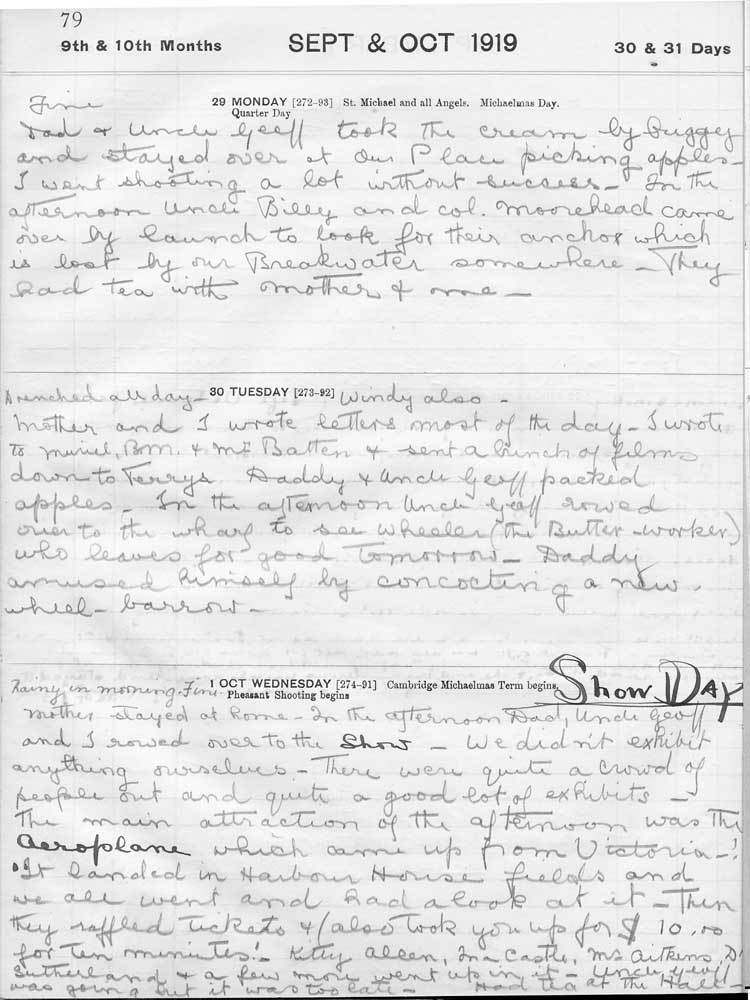 79
9th & 10th Months SEPT & OCT 1919 30 & 31 Days
Fine 29 MONDAY [272-93] St. Michael and all Angels. Michaelmas Day.
Quarter Day
Dad & Uncle Geoff took the cream by buggey
and stayed over at Our Place picking apples -
I went shooting a lot without success - In the
afternoon Uncle Billy and col. Moorehead came
over by launch to look for their anchor which
is lost by our Breakwater somewhere - They
had tea with mother & me -
Drenched all day - 30 TUESDAY [273-92] Windy also -
Mother and I wrote letters most of the day - I wrote
To Muriel, Bm. & Mrs Batten & sent a bunch of films
down to Terrys. Daddy & Uncle Geoff packed
apples - In the afternoon Uncle Geoff rowed
over to the wharf to see Wheeler (the Butter-worker)
who leaves for good tomorrow - Daddy
amused himself by concocting a new
wheel-barrow -
Rainy in morning. Fine. 1 OCT WEDNESDAY [274-91] Cambridge Michaelmas Term begins. Show Day
Pheasant Shooting begins
Mother stayed at home - In the afternoon Dad, Uncle Geoff
and I rowed over to the Show - We didn't exhibit
anything ourselves - There were quite a crowd of
people out and quite a good lot of exhibits -
The main attraction of the afternoon was The
Aeroplane which came up from Victoria - !
It landed in Harbour House fields and
we all went and had a look at it - Then
they raffled tickets & (also took you up for $ 10.00
for ten minutes! - Kitty Allen, Castle, Mrs Aitkens, Dr
Sutherland & a few more went up in it - Uncle Geoff
was going but it was too late - Had tea at the Hall -